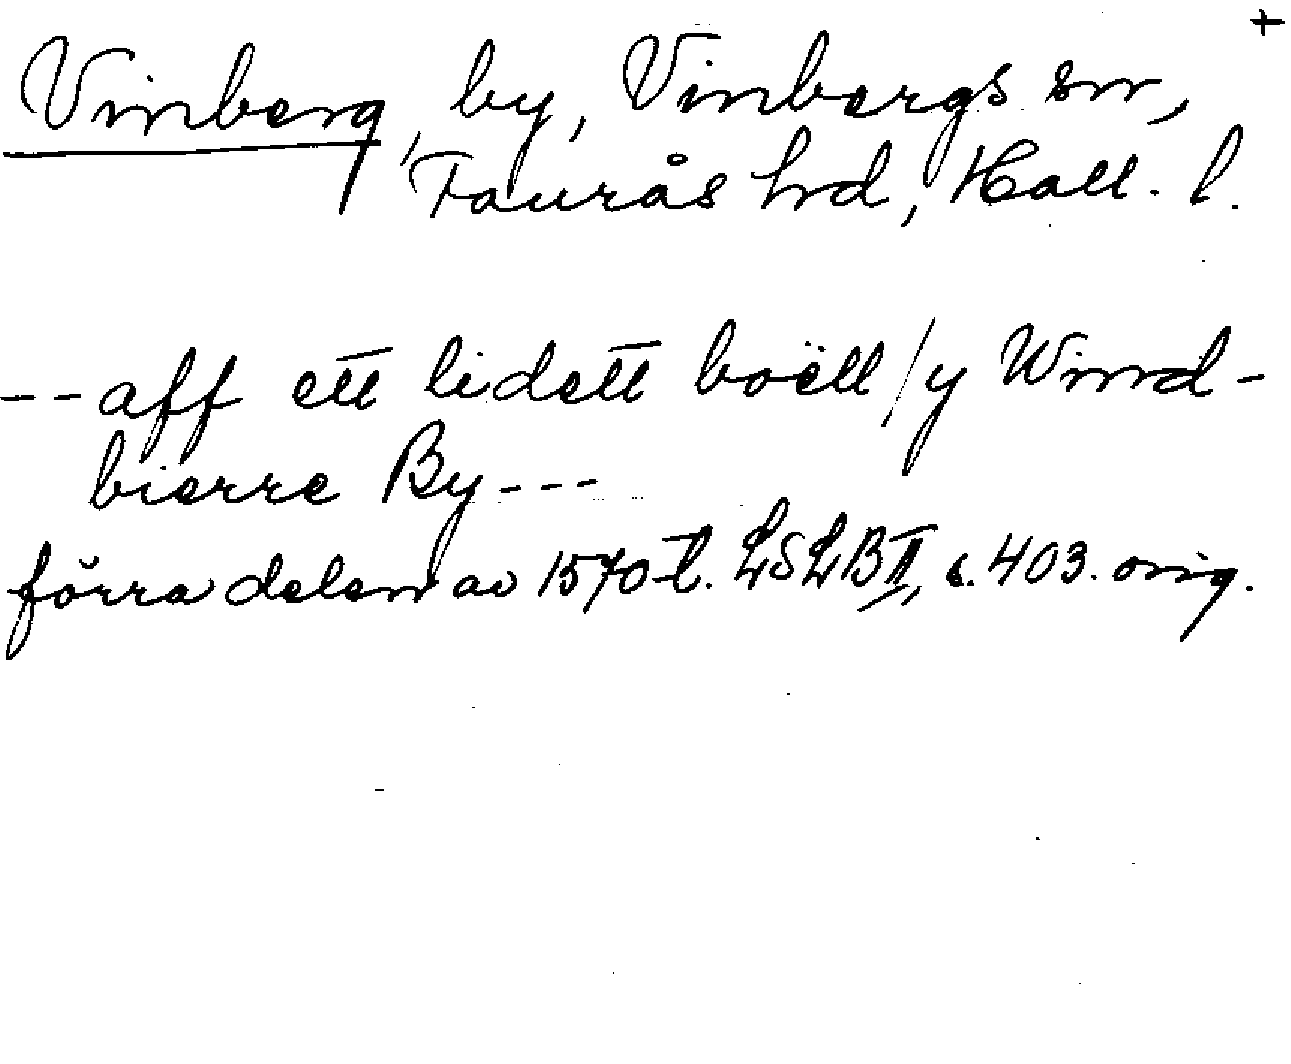 +
Vinberg, by, Vinbergs sn,
Faurås hd, Hall. l.
-- aff ett lidett boëll /y Wind-
bierre By ---
förra delen av 1570-t. LSLB II, s. 403. orig.